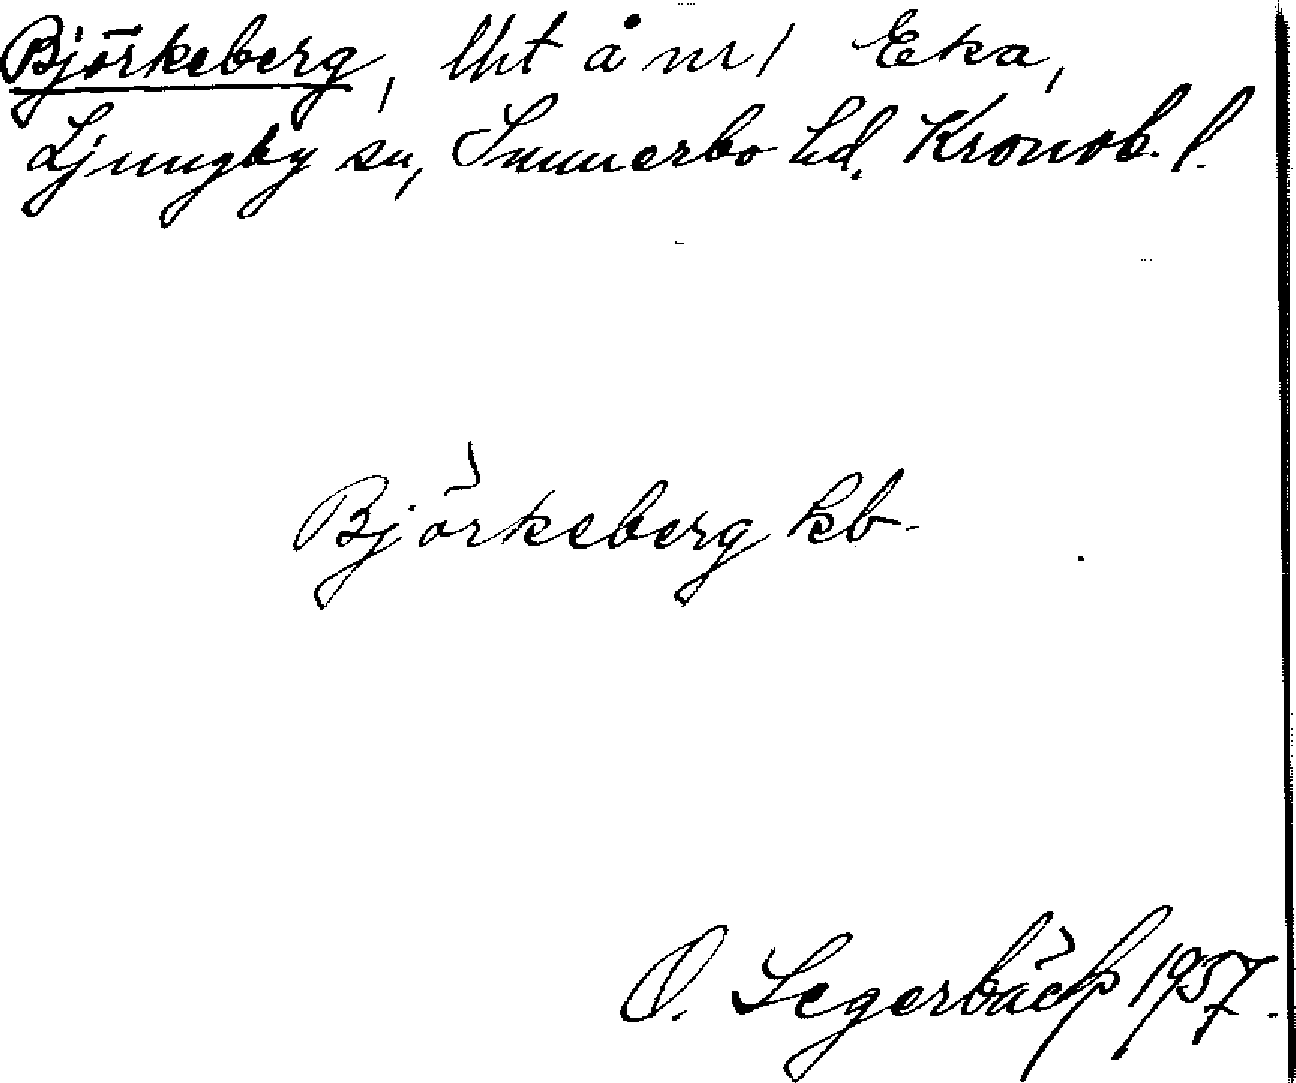 Björkeberg, lht å nr 1 Eka,
Ljungby sn, Sunnerbo hd, Kronob. l.
Björkeberg kb.
O. Segerbäck 1957.